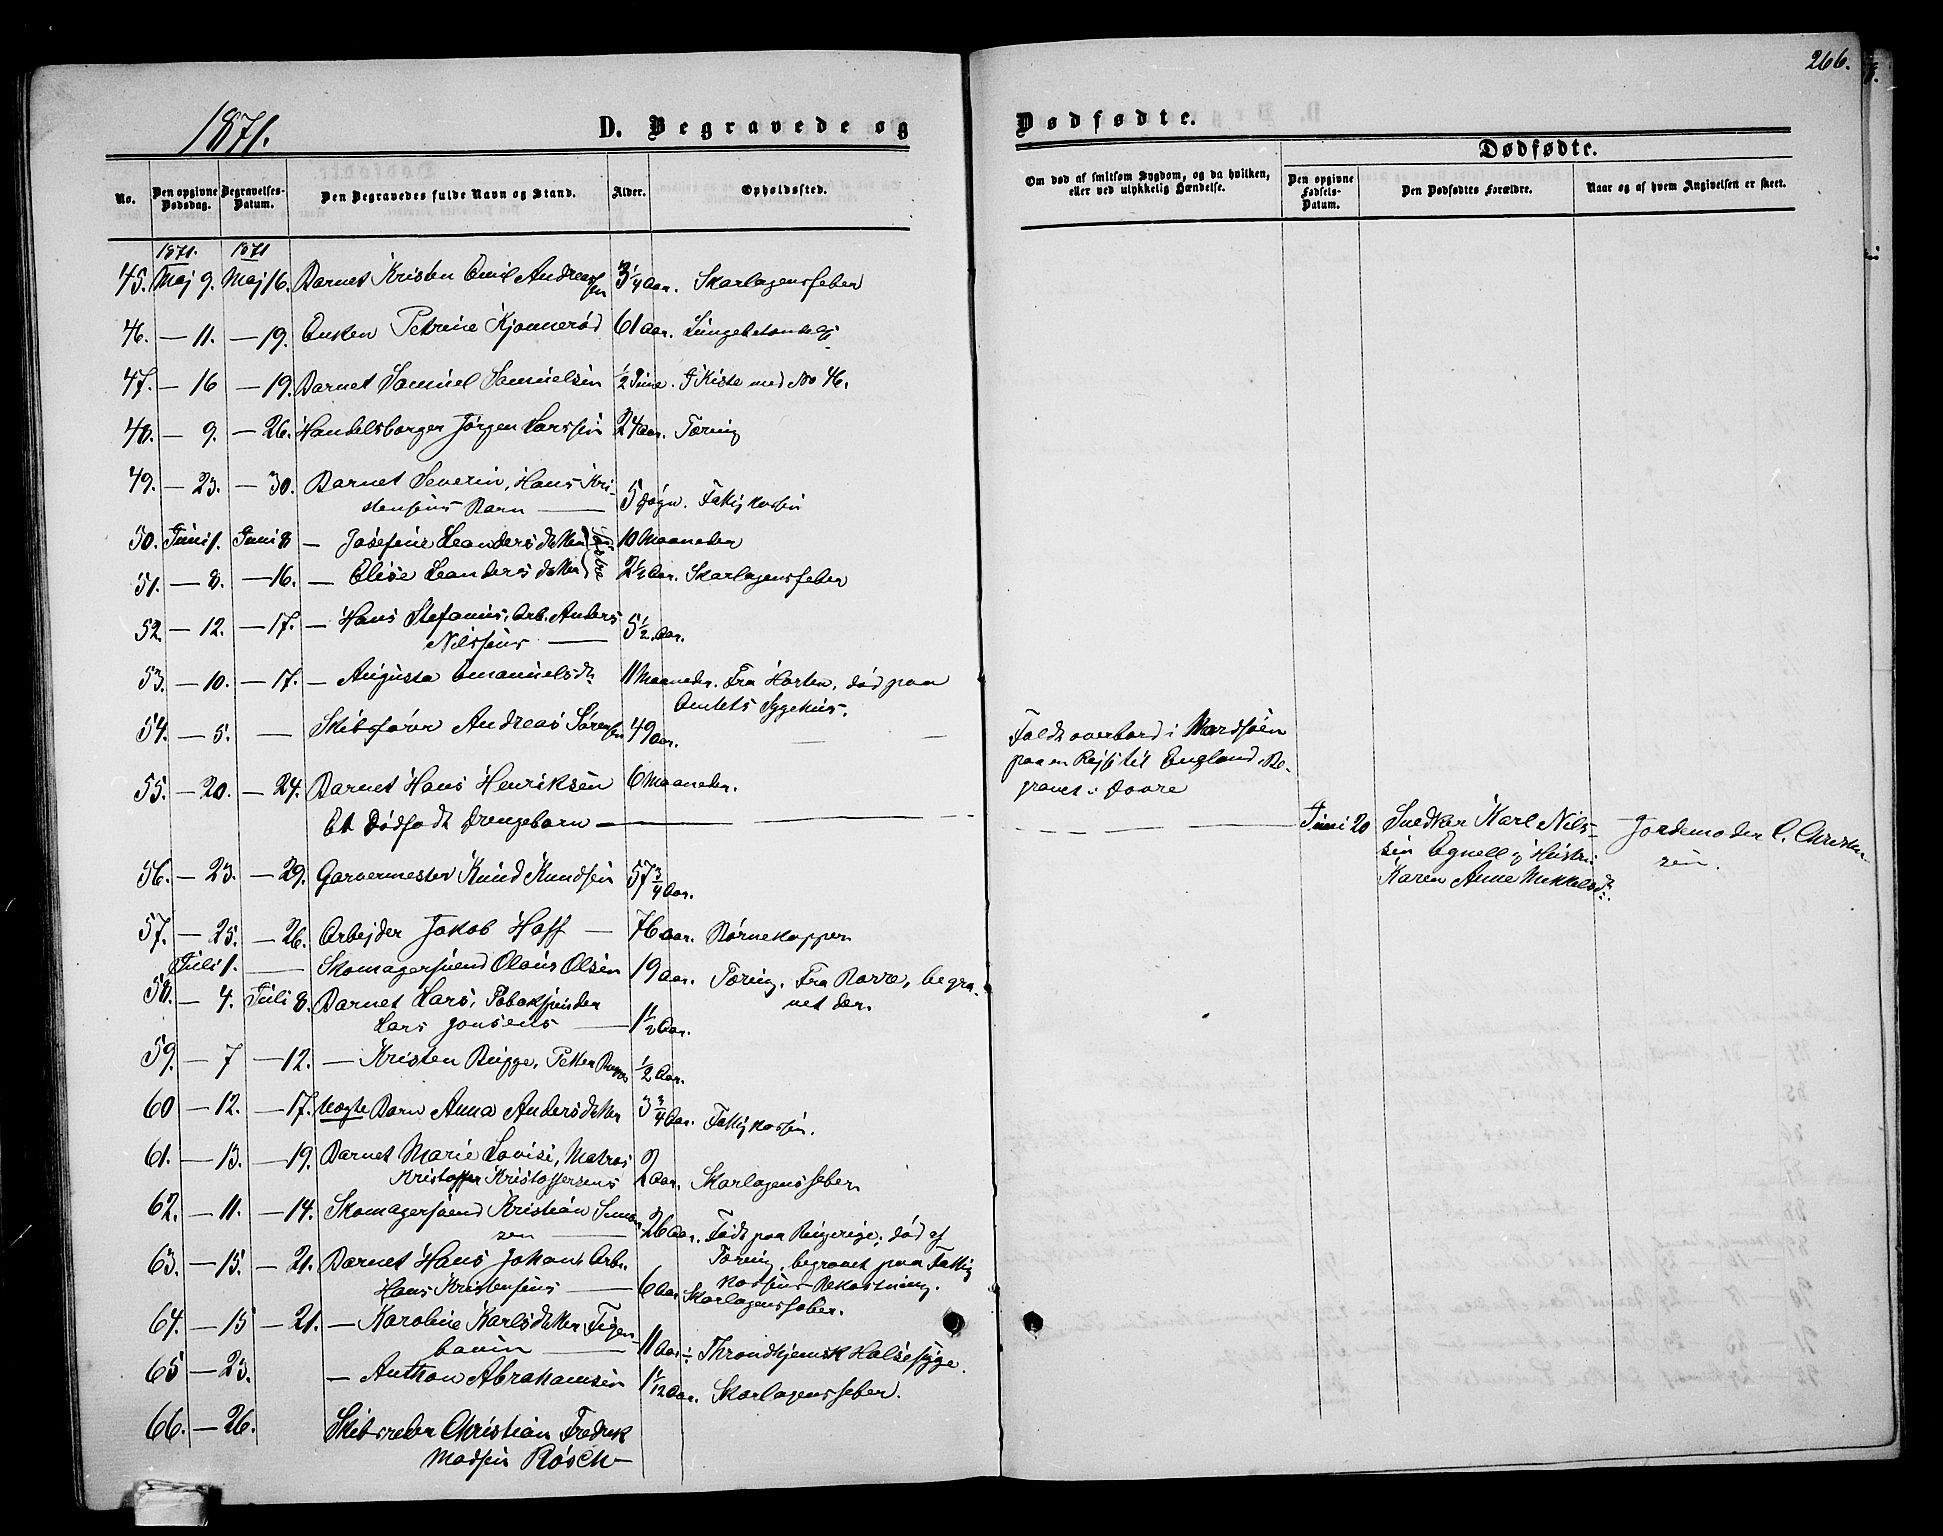 266.
1871.
D. Begravede og
Dødfødte.
Dødfødte.
No.
Den opgivne Dødsdag.
Begravelses-Datum.
Den Begravedes fulde Navn og Stand.
Alder.
Opholdssted.
Om død af smitsom Sygdom, og da hvilken, eller ved ulykkelig Hændelse.
Den opgivne Fødsels-Datum.
Den Dødfødtes Forældre.
Naar og af hvem Angivelsen er skeet.
1871. 1871
45. Maj 9. Maj 16. Barnet Kristen Emil Andreassen 3 1/4 Aar. Skarlagensfeber
46. — 11. — 19. Enken Petrine Kjonnerød 61 Aar. Lungebetændelse
47. — 16 — 19. Barnet Samuel Samuelsen 1/2 Time. I Kiste med No 46.
48. — 9. — 26. Handelsborger Jørgen Larssen 24 Aar. Tæring
49. — 23. — 30. Barnet Severin, Hans Kri-
stensens Barn — 5 Døgn. Fattigkassen
50. Juni 1. Juni 8 — Josefine Leandersdatter 10 Maaneder
51. — 8. — 16. — Elise Leandersdatter 2 1/2 Aar. Skarlagensfeber
52. — 12. — 17. — Hans Stefanus, Arb. Anders
Nilssens — 5 1/2 Aar.
53. — 10. — 17. — Augusta Emanuelsdr 11 Maaneder. Fra Horten, død paa
Amtets Sygehus.
54. — 5. — Skibsfører Andreas Sørensen 49 Aar. — — Faldt overbord i Nordsøen
paa en Rejse til England. Be-
gravet i Dovre
55. — 20. — 24. Barnet Hans Henriksen 6 Maaneder.
Et Dødfødt Drengebarn — Juni 20 Snedker Karl Nils-
sen Egnell og Hustru
Karen Anne Mikkelsdr.
Jordemoder C. Christen-
sen.
56. — 23. — 29. Garvermester Knud Knudsen 57 3/4 Aar.
57. — 25. — 26. Arbejder Jakob Hoff — 76 Aar. Børnekopper
Juli 1. — Skomagersvend Olaus Olsen 19 Aar. Tæring. Fra Borre, begra-
vet der.
58. — 4. Juli 8. Barnet Lars, Tobakspinder
Lars Jonsens — 1 1/2 Aar.
59. — 7 — 12. — Kristen Bugge, Petter Bugges 1/2 Aar.
60 — 12. — 17. Uægte Barn Anna Andersdatter 3 3/4 Aar. Fattigkassen.
61. — 13. — 19. Barnet Marie Lovise, Matros
Kristoffer Kristoffersens 2 Aar. Skarlagensfeber
62. — 11. — 14. Skomagersvend Kristian Simon-
sen — 26 Aar. Født paa Ringerige, død af
Tæring, begravet paa Fattig
kassens Bekostning.
63. — 15. — 21. Barnet Hans Johan, Arb.
Hans Kristensens — 6 Aar Skarlagensfeber.
64. — 15 — 21. — Karoline Karlsdatter, Figen-
baum — 11 Aar Throndhjemsk Halssyge.
65 — 23. — Anthon Abrahamsen 1 1/12 Aar. Skarlagensfeber.
66. — 26. Skibsreder Christian Fredrik
Madsen Røsch